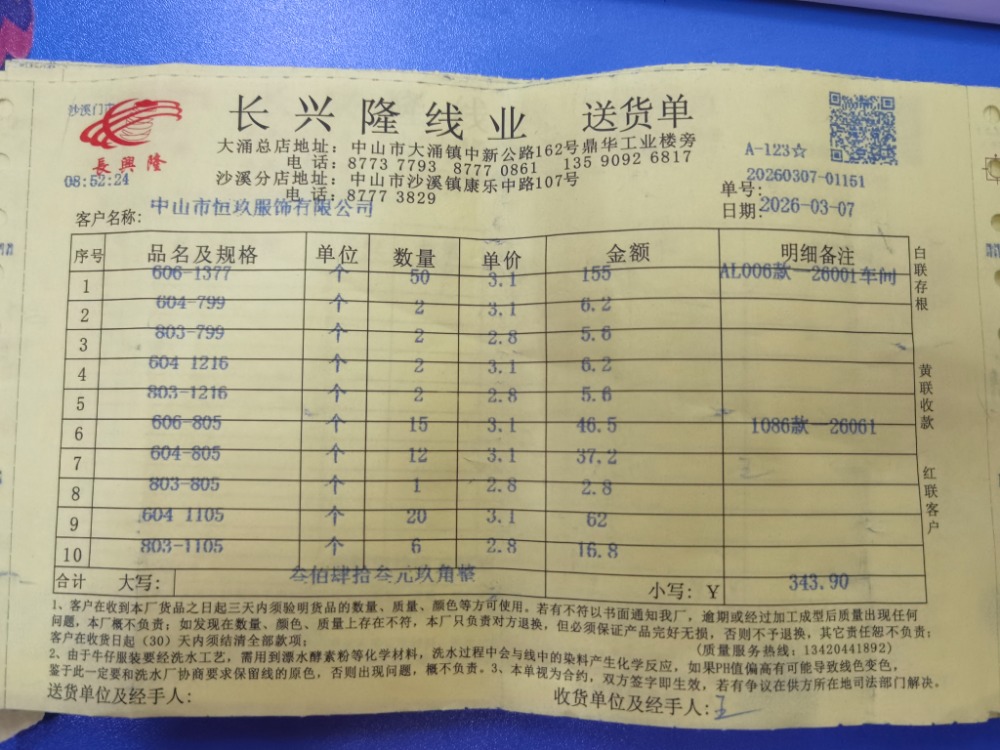 沙溪门市
長興隆
长兴隆线业 送货单
大涌总店地址：中山市大涌镇中新公路162号鼎华工业楼旁
电话：8773 7793 8777 0861 135 9092 6817
沙溪分店地址：中山市沙溪镇康乐中路107号
电话：8777 3829
A-123☆
08:52:24
单号：20260307-01151
客户名称：中山市恒玖服饰有限公司
日期：2026-03-07
序号 品名及规格 单位 数量 单价 金额 明细备注
1 606-1377 个 50 3.1 155 AL006款--26001车间
2 604-799 个 2 3.1 6.2
3 803-799 个 2 2.8 5.6
4 604-1216 个 2 3.1 6.2
5 803-1216 个 2 2.8 5.6
6 606-805 个 15 3.1 46.5 1086款--26061
7 604-805 个 12 3.1 37.2
8 803-805 个 1 2.8 2.8
9 604-1105 个 20 3.1 62
10 803-1105 个 6 2.8 16.8
合计 大写：叁佰肆拾叁元玖角整 小写：Y 343.90
白联存根
黄联收款
红联客户
1、客户在收到本厂货品之日起三天内须验明货品的数量、质量、颜色等方可使用。若有不符以书面通知我厂，逾期或经过加工成型后质量出现任何
问题，本厂概不负责；如发现在数量、颜色、质量上存在不符，本厂只负责对方退换，但必须保证产品完好无损，否则不予退换，其它责任恕不负责；
客户在收货日起（30）天内须结清全部款项； （质量服务热线：13420441892）
2、由于牛仔服装要经洗水工艺，需用到漂水酵素粉等化学材料，洗水过程中会与线中的染料产生化学反应，如果PH值偏高有可能导致线色变色，
鉴于此一定要和洗水厂协商要求保留线的原色，否则出现问题，概不负责。3、本单视为合约，双方签字即生效，若有争议在供方所在地司法部门解决。
送货单位及经手人： 收货单位及经手人：